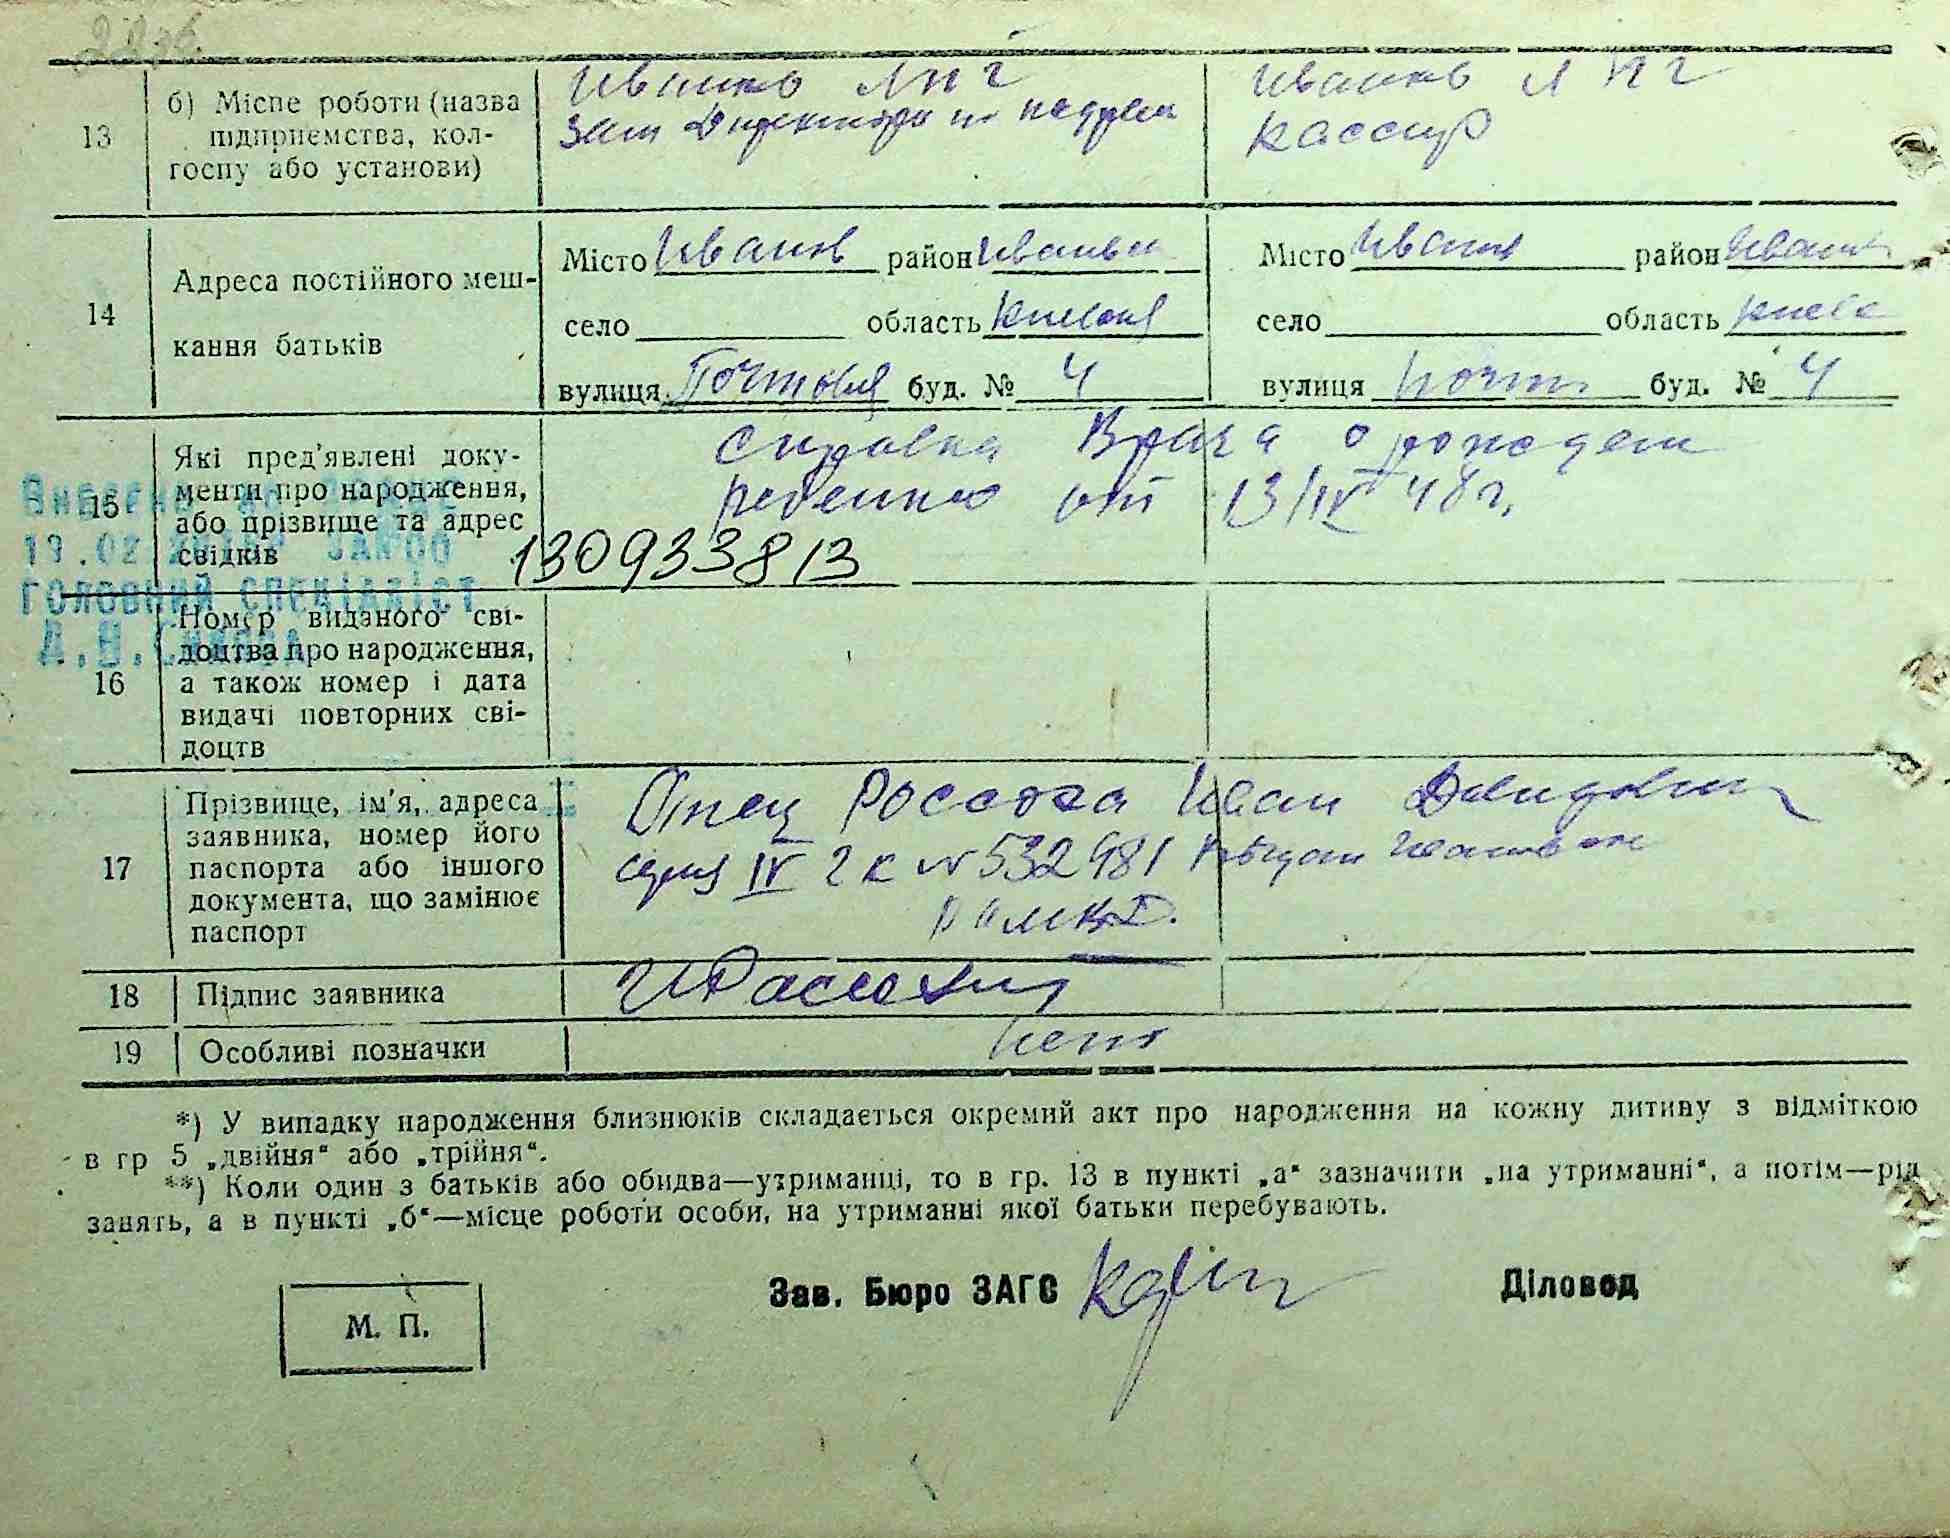 13
б) Місце роботи (назва підприємства, кол-
госпу або установи)
Кассир
14
Адреса постійного меш-
кання батьків
Місто Иванков район Иванков
село область Киевская
вулиця Почтовая буд. № 4
Місто Иванков район Иванк
село область Киевс
вулиця Почт. буд. № 4
15
Які пред'явлені доку-
менти про народження,
або прізвище та адрес
свідків
справка Врача о рожден
ребенка от 13/IV 48 г.
130933813
Внесено до
19.02
ГОЛОВНИЙ СПЕЦІАЛІСТ
16
Номер виданого сві-
доцтва про народження,
а також номер і дата
видачі повторних сві-
доцтв
17
Прізвище, ім'я, адреса
заявника, номер його
паспорта або іншого
документа, що замінює
паспорт
Отец Россоха Иван Давидович
серия IV 2к № 532981
18 Підпис заявника
19 Особливі позначки
нет
*) У випадку народження близнюків складається окремий акт про народження на кожну дитину з відміткою
в гр 5 „двійня“ або „трійня“.
**) Коли один з батьків або обидва—утриманці, то в гр. 13 в пункті „а“ зазначити „на утриманні“, а потім—рід
занять, а в пункті „б“—місце роботи особи, на утриманні якої батьки перебувають.
М. П.
Зав. Бюро ЗАГС
Діловод